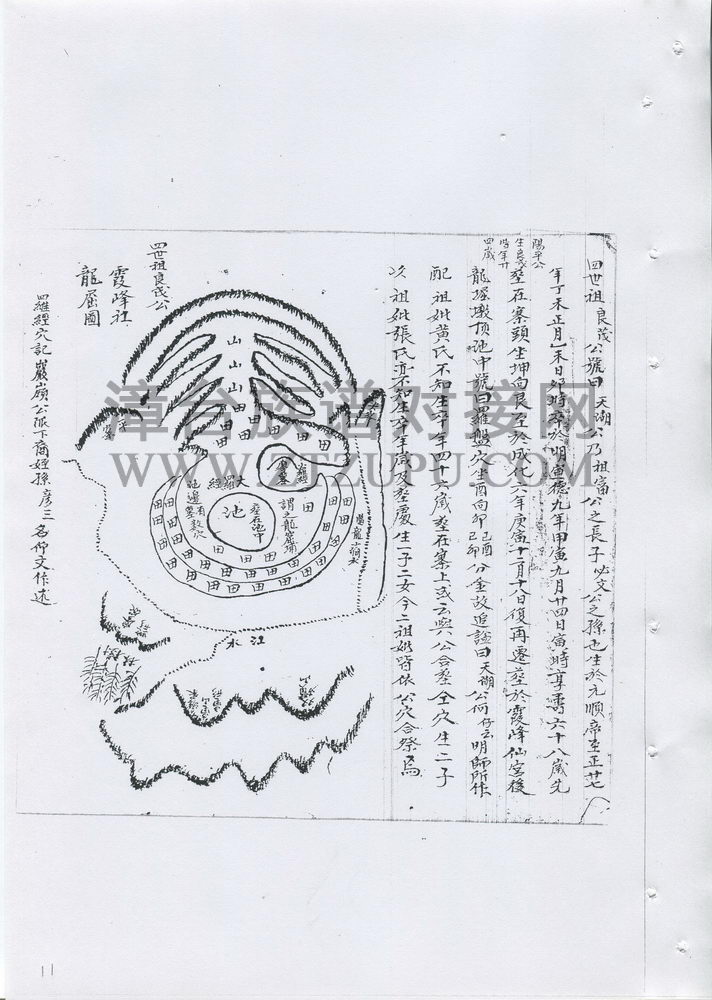 四世祖良茂公號曰天湖公乃祖富公之長子必文公之孫也生於元順帝至正廿七
年丁未正月一未日卯時卒於明宣德九年甲寅九月廿四日寅時享壽六十八歲先
陽平公
生良茂
時年廿
四歲
葬在寨頭坐坤向艮至於成化六年庚寅十一月十八日復再遷葬於霞峰仙宮後
龍堀墩頂池中號曰羅盤穴酉向卯己酉己卯分金故追謚曰天湖公何仔云明師所作
配祖妣黃氏不知生卒年四十六歲葬在寨上或云與公合葬仝穴生二子
次祖妣張氏亦不知生卒年歲及葬處生一子二女今二祖妣皆依公穴合祭焉
四世祖良茂公
霞峰社
龍屈圖
四羅經穴記巖嶺公派下裔姪孫彥三名仰文作述
山
山
山
田
田
羅
經
池
葬在池中
謂之龍窟埔
池邊有數穴
江水
漳台族谱对接网
WWW.ZTZUPU.COM
11